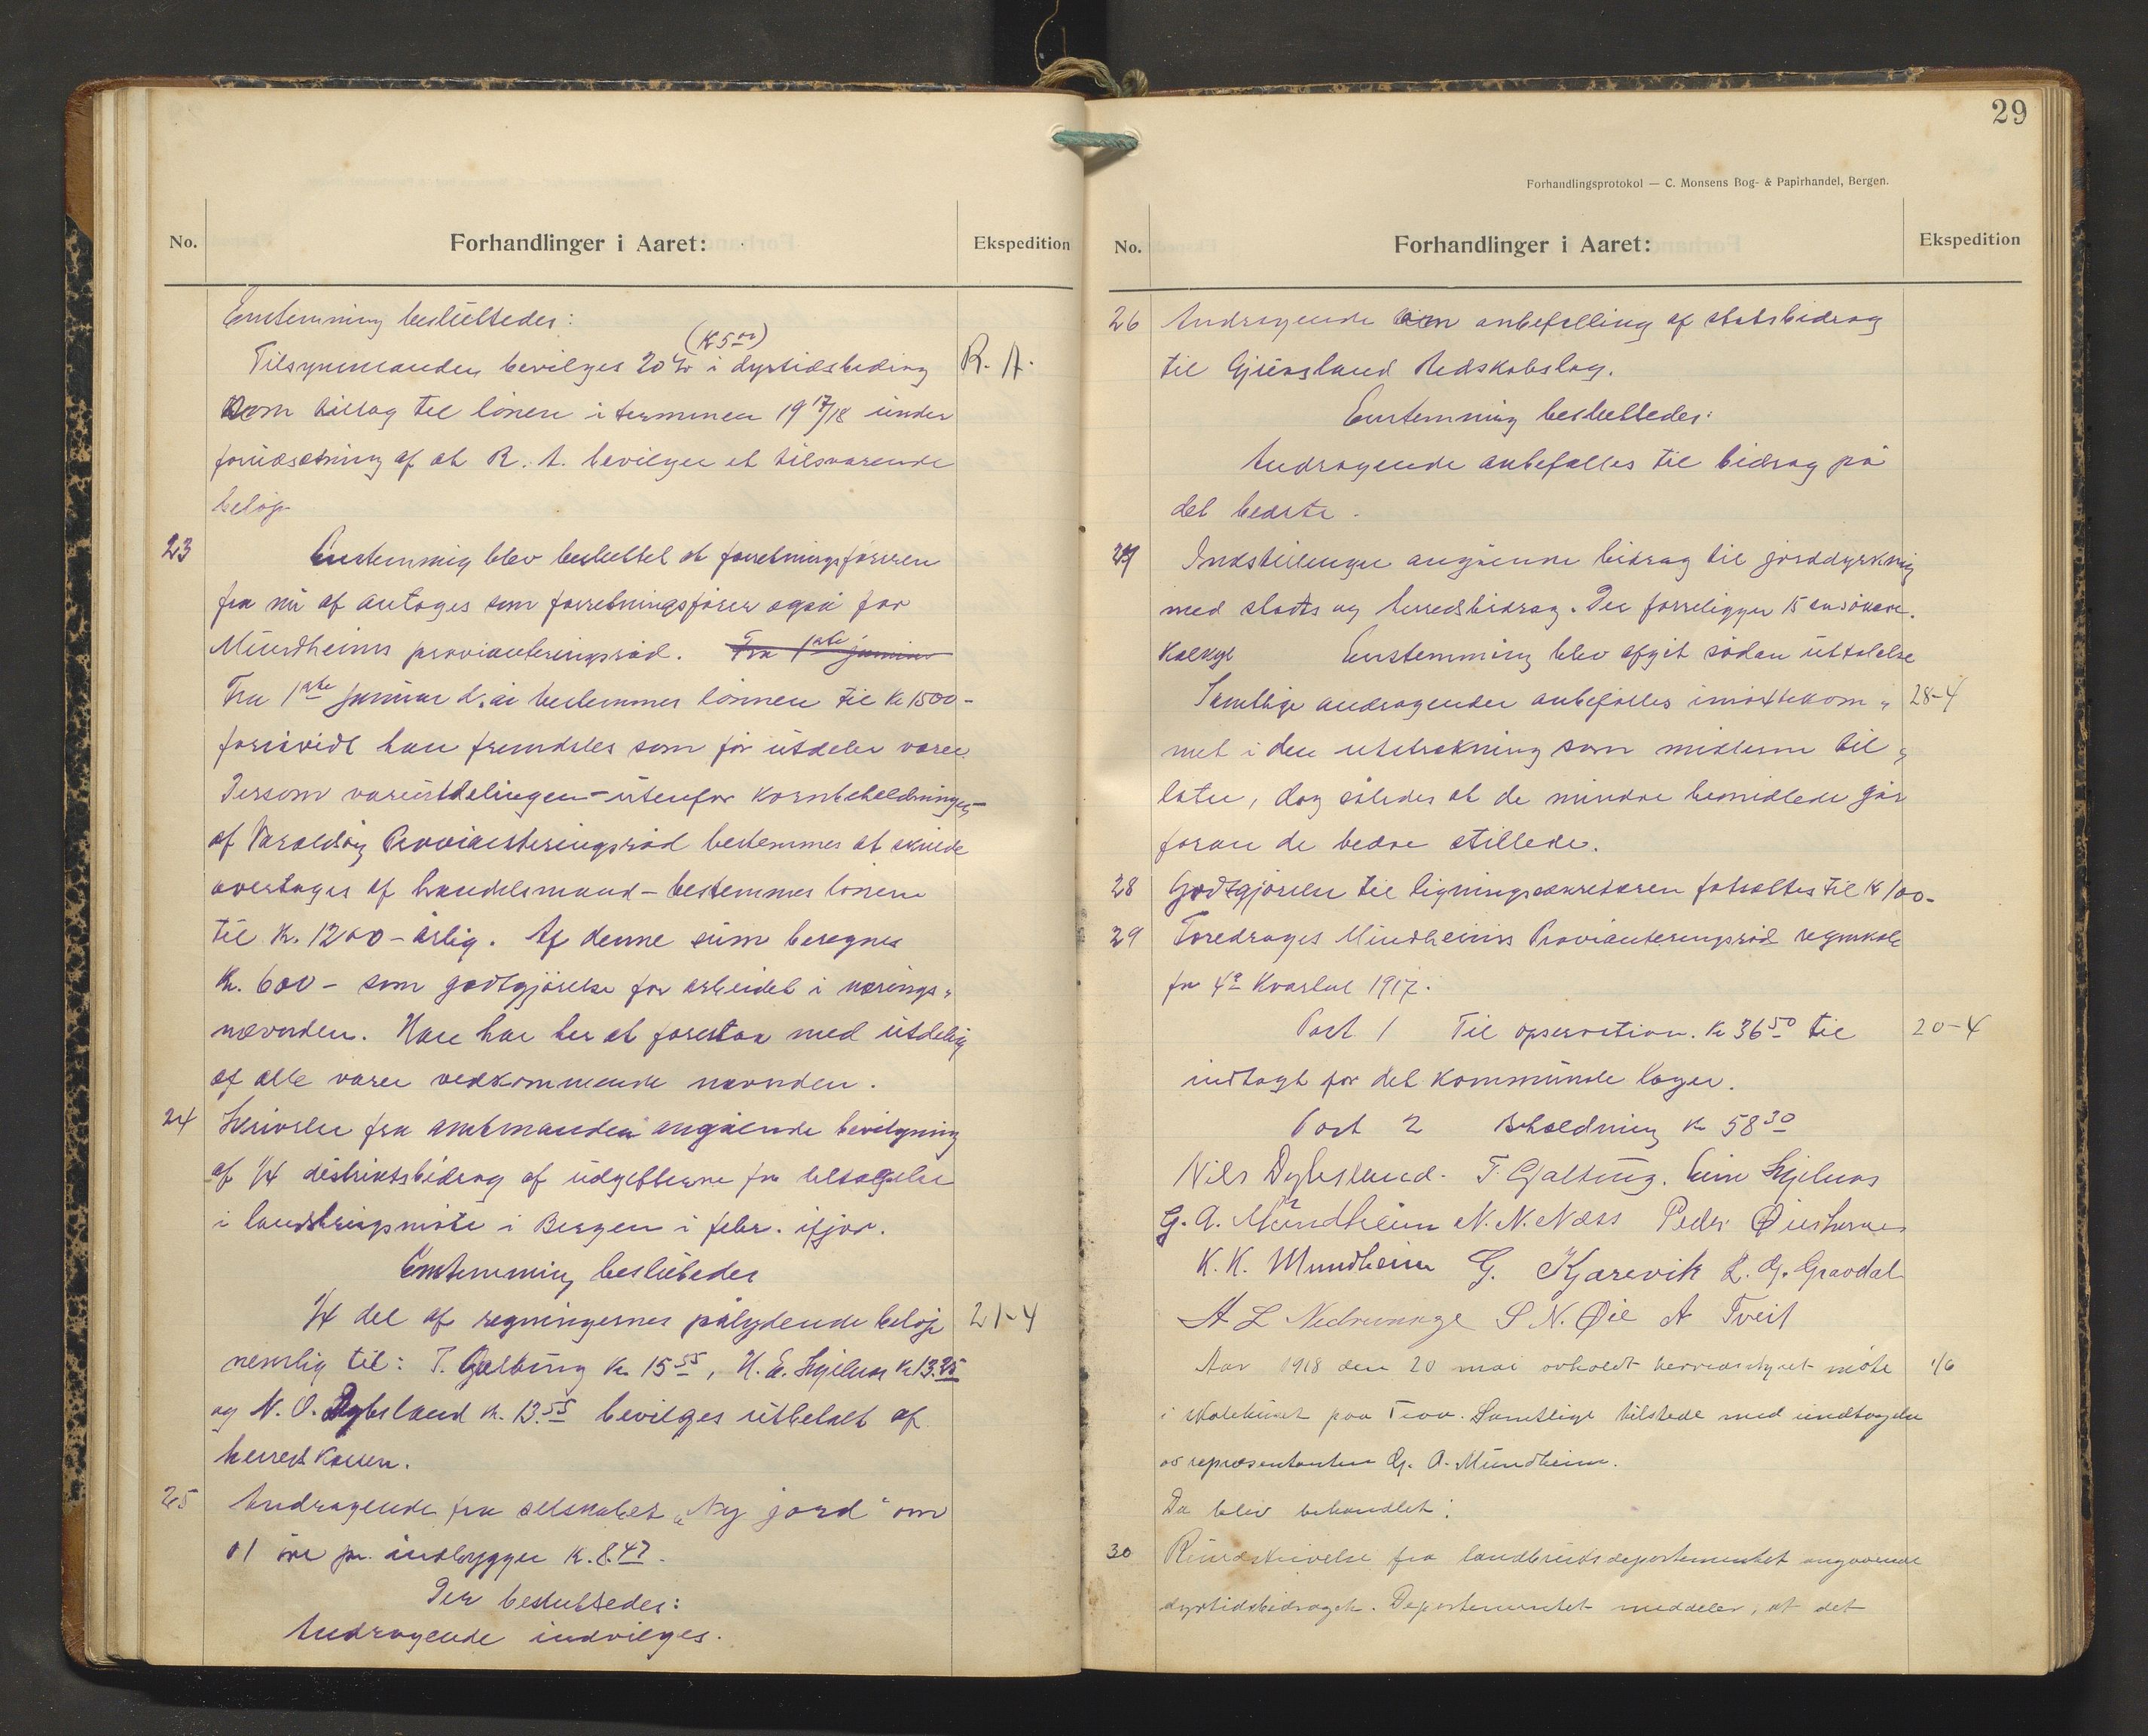 No.
Forhandlinger i Aaret:
Ekspedition
Enstemmig besluttedes:
(K 5 00)
Tilsynsmanden bevilges 20 % i dyrtidsbidrag
R. A.
som tillag til lönen i terminen 19 17/18 under
forudsætning af at R. A. bevilger et tilsvarende
beløp
23
Enstemmig blev besluttet at forretningsföreren
fra nu af antages som forretningsförer også for
Mundheims provianteringsråd. Fra 1ste januar
Fra 1ste januar d. år bestemmes lönnen til K 1500-
forsåvidt han fremdeles som för utdeler varer.
Dersom vareutdelingen - utenfor kornbeholdningen -
af Varaldsöy Provianteringsråd bestemmes at skulde
overtages af handelsmand - bestemmes lönnen
til K. 1200 - årlig. Af denne sum beregnes
K. 600 - som godtgjörelse for arbeidet i nærings-
nævnden. Han har her at forestaa med utdelig
af alle varer vedkommende nævnden.
24
Skrivelse fra amtmanden angående bevilgning
af 1/4 distriktsbidrag af udgifterne for deltagelse
i landstingsmöte i Bergen i febr. ifjor.
Enstemmig besluttedes
1/4 del af regningernes pålydende beløp
21-4
nemlig til: T. Gjelting K. 15 55, H. E. Skjelnes K 13.25
og N. O. Dybsland K. 13.55 bevilges utbetalt af
herredskassen.
25
Andragende fra selskabet "Ny jord" om
01 öre pr. indbygger K. 8.47.
Der besluttedes:
Andragende indvilges.
29
Forhandlingsprotokol — C. Monsens Bog- & Papirhandel, Bergen.
No.
Forhandlinger i Aaret:
Ekspedition
26
Andragende om anbefalling af statsbidrag
til Gjuvsland Redskabslag.
Enstemmig besluttedes:
Andragende anbefalles til bidrag på
det bedste.
27
Indstillinger angående bidrag til jorddyrkning
med stats og herredsbidrag. Der forreligger 15 ansökere.
Enstemmig blev afgit sådan uttalelse
Samtlige andragender anbefalles imöttekom-
28-4
met i den utstrekning som midlerne til-
later, dog således at de mindre bemidlede går
foran de bedre stillede.
28
Godtgjörelse til ligningssekretæren fatsattes til K 100-
29
Foredrages Mundheims Provianteringsråd regnskab
for 4de Kvartal 1917.
Post 1 Til opservation. K 36 50 til
20-4
indtagt for det kommunde lager.
Post 2 Beholdning K 58 30
Nils Dybsland. T. Gjelting. Einr Skjelnes
G. A. Mundheim N. N. Næss Peder Øierhavn
K. K. Mundheim G. Kjærevik K. G. Gravdal
A L Nedrevaage S N. Øie A Tveit
Aar 1918 den 20 mai avholdt herredsstyret möte
1/6
i skolehuset paa Troo. Samtlige tilstede med undtagelse
av repræsentanten G. A. Mundheim.
Da blev behandlet:
30
Rundskrivelse fra landbruksdepartementet angaaende
dyrtidsbidraget. Departementet meddeler, at det